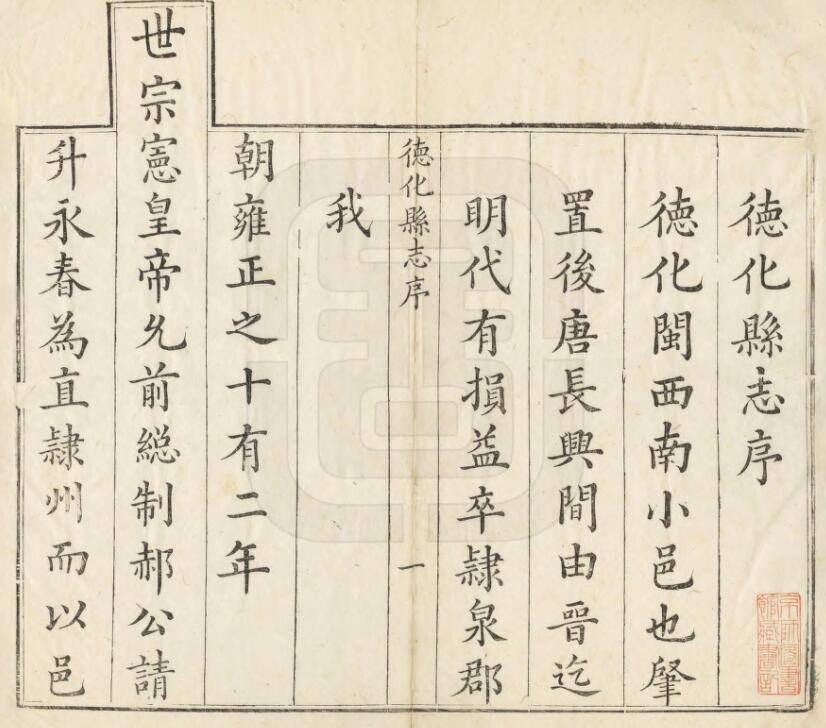 德化縣志序
德化閩西南小邑也肇
置後唐長興間由晉迄
明代有損益卒隷泉郡
我
德化縣志序
一
朝雍正之十有二年
世宗憲皇帝允前緫制郝公請
升永春為直隷州而以邑